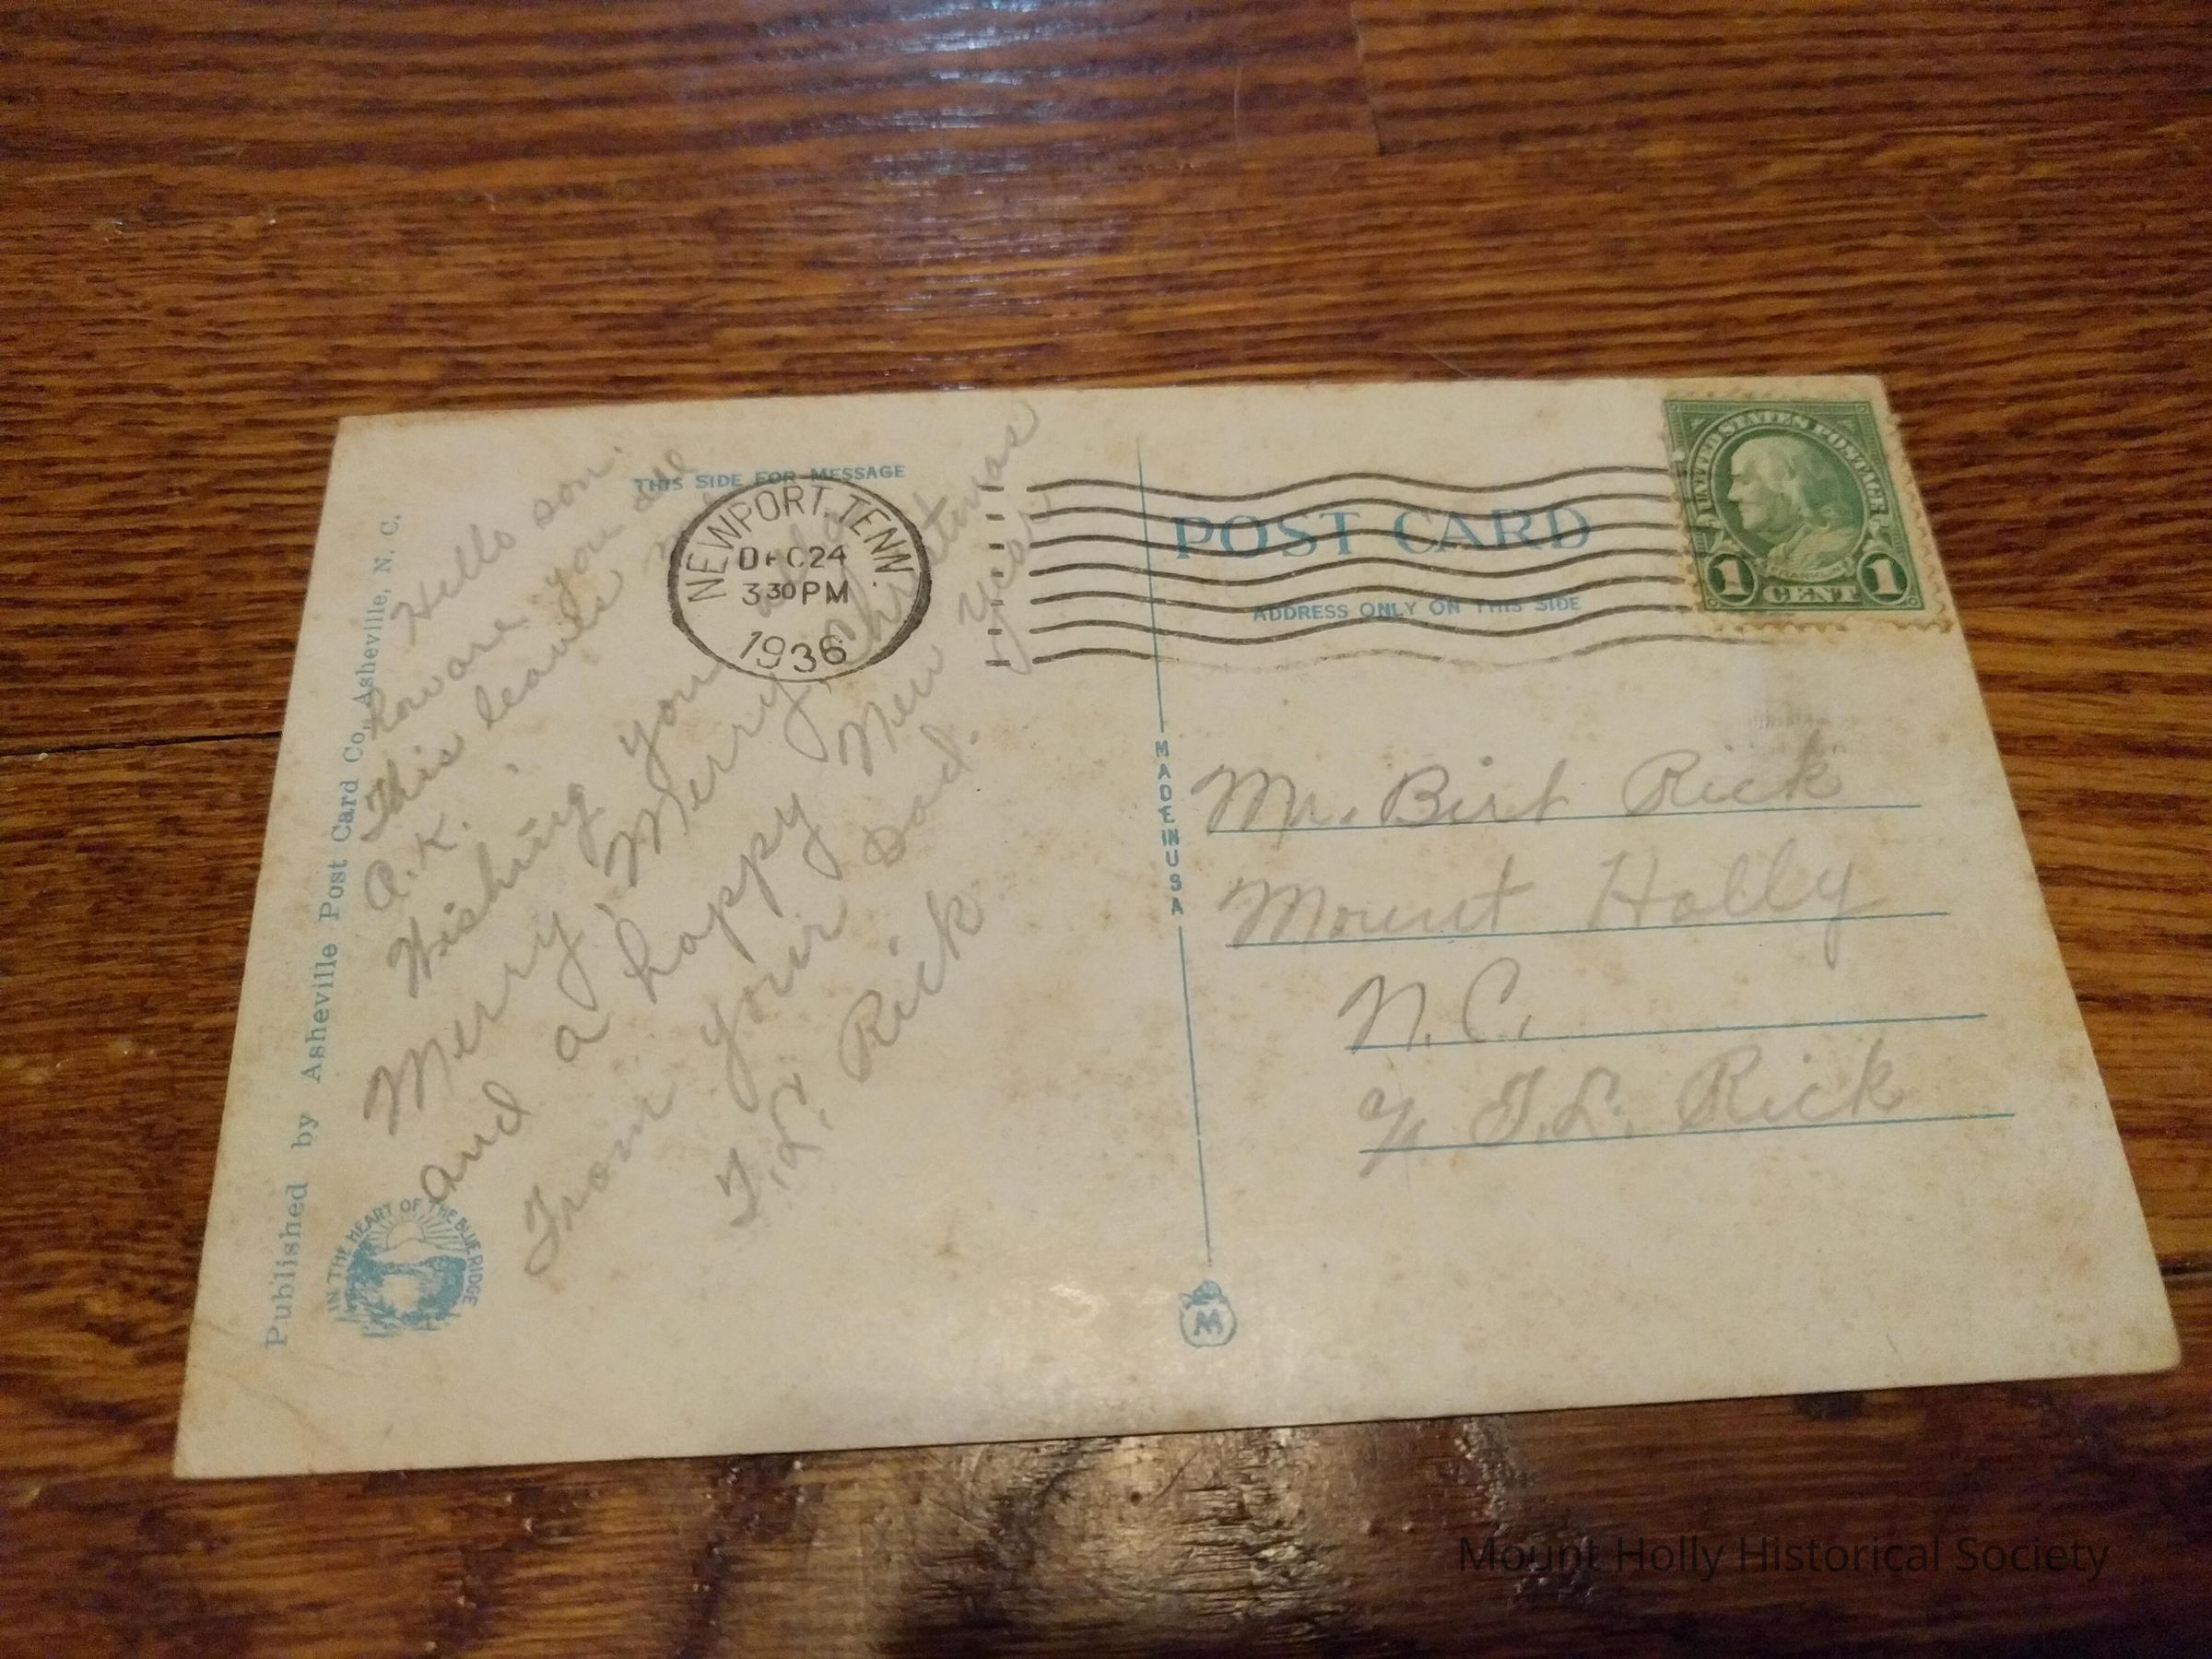 Published by Asheville Post Card Co., Asheville, N. C.
IN THE HEART OF THE BLUE RIDGE
THIS SIDE FOR MESSAGE
Hello son.
how are you
This leaves
O.K.
Wishing you
Merry, Merry, Christmas
and a happy New Year
From your Dad.
T.L. Rick
NEWPORT, TENN.
DEC 24
3 30 PM
1936
MADE IN USA
M
POST CARD
ADDRESS ONLY ON THIS SIDE
UNITED STATES POSTAGE
1 CENT 1
Mr. Birt Rick
Mount Holly
N.C.
% T.L. Rick
Mount Holly Historical Society